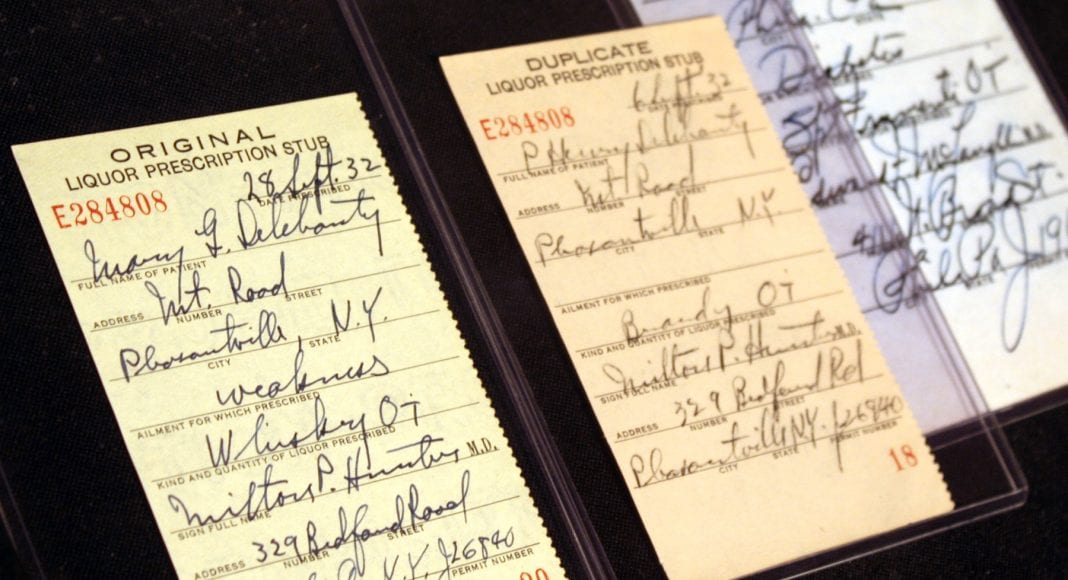 ORIGINAL
LIQUOR PRESCRIPTION STUB
E284808
28 Sept. 32
DATE PRESCRIBED
Mary G. Delehanty
FULL NAME OF PATIENT
Mt. Road
ADDRESS NUMBER STREET
Pleasantville, N.Y.
CITY STATE
weakness
AILMENT FOR WHICH PRESCRIBED
Whiskey OT
KIND AND QUANTITY OF LIQUOR PRESCRIBED
Milton P. Hunter M.D.
SIGN FULL NAME
329 Bedford Road
ADDRESS NUMBER STREET
N.Y. J26840
PERMIT NUMBER
DUPLICATE
LIQUOR PRESCRIPTION STUB
Sept 32
E284808
P Henry Delehanty
FULL NAME OF PATIENT
Mt Road
ADDRESS NUMBER STREET
Pleasantville N.Y.
CITY STATE
AILMENT FOR WHICH PRESCRIBED
Brandy OT
KIND AND QUANTITY OF LIQUOR PRESCRIBED
Milton P. Hunter M.D.
SIGN FULL NAME
329 Bedford Rd
ADDRESS NUMBER STREET
Pleasantville N.Y. J26840
CITY STATE PERMIT NUMBER
18
Phila.
CITY STATE
Diabetes
OT
M.D.
Broad St.
Phila Pa J